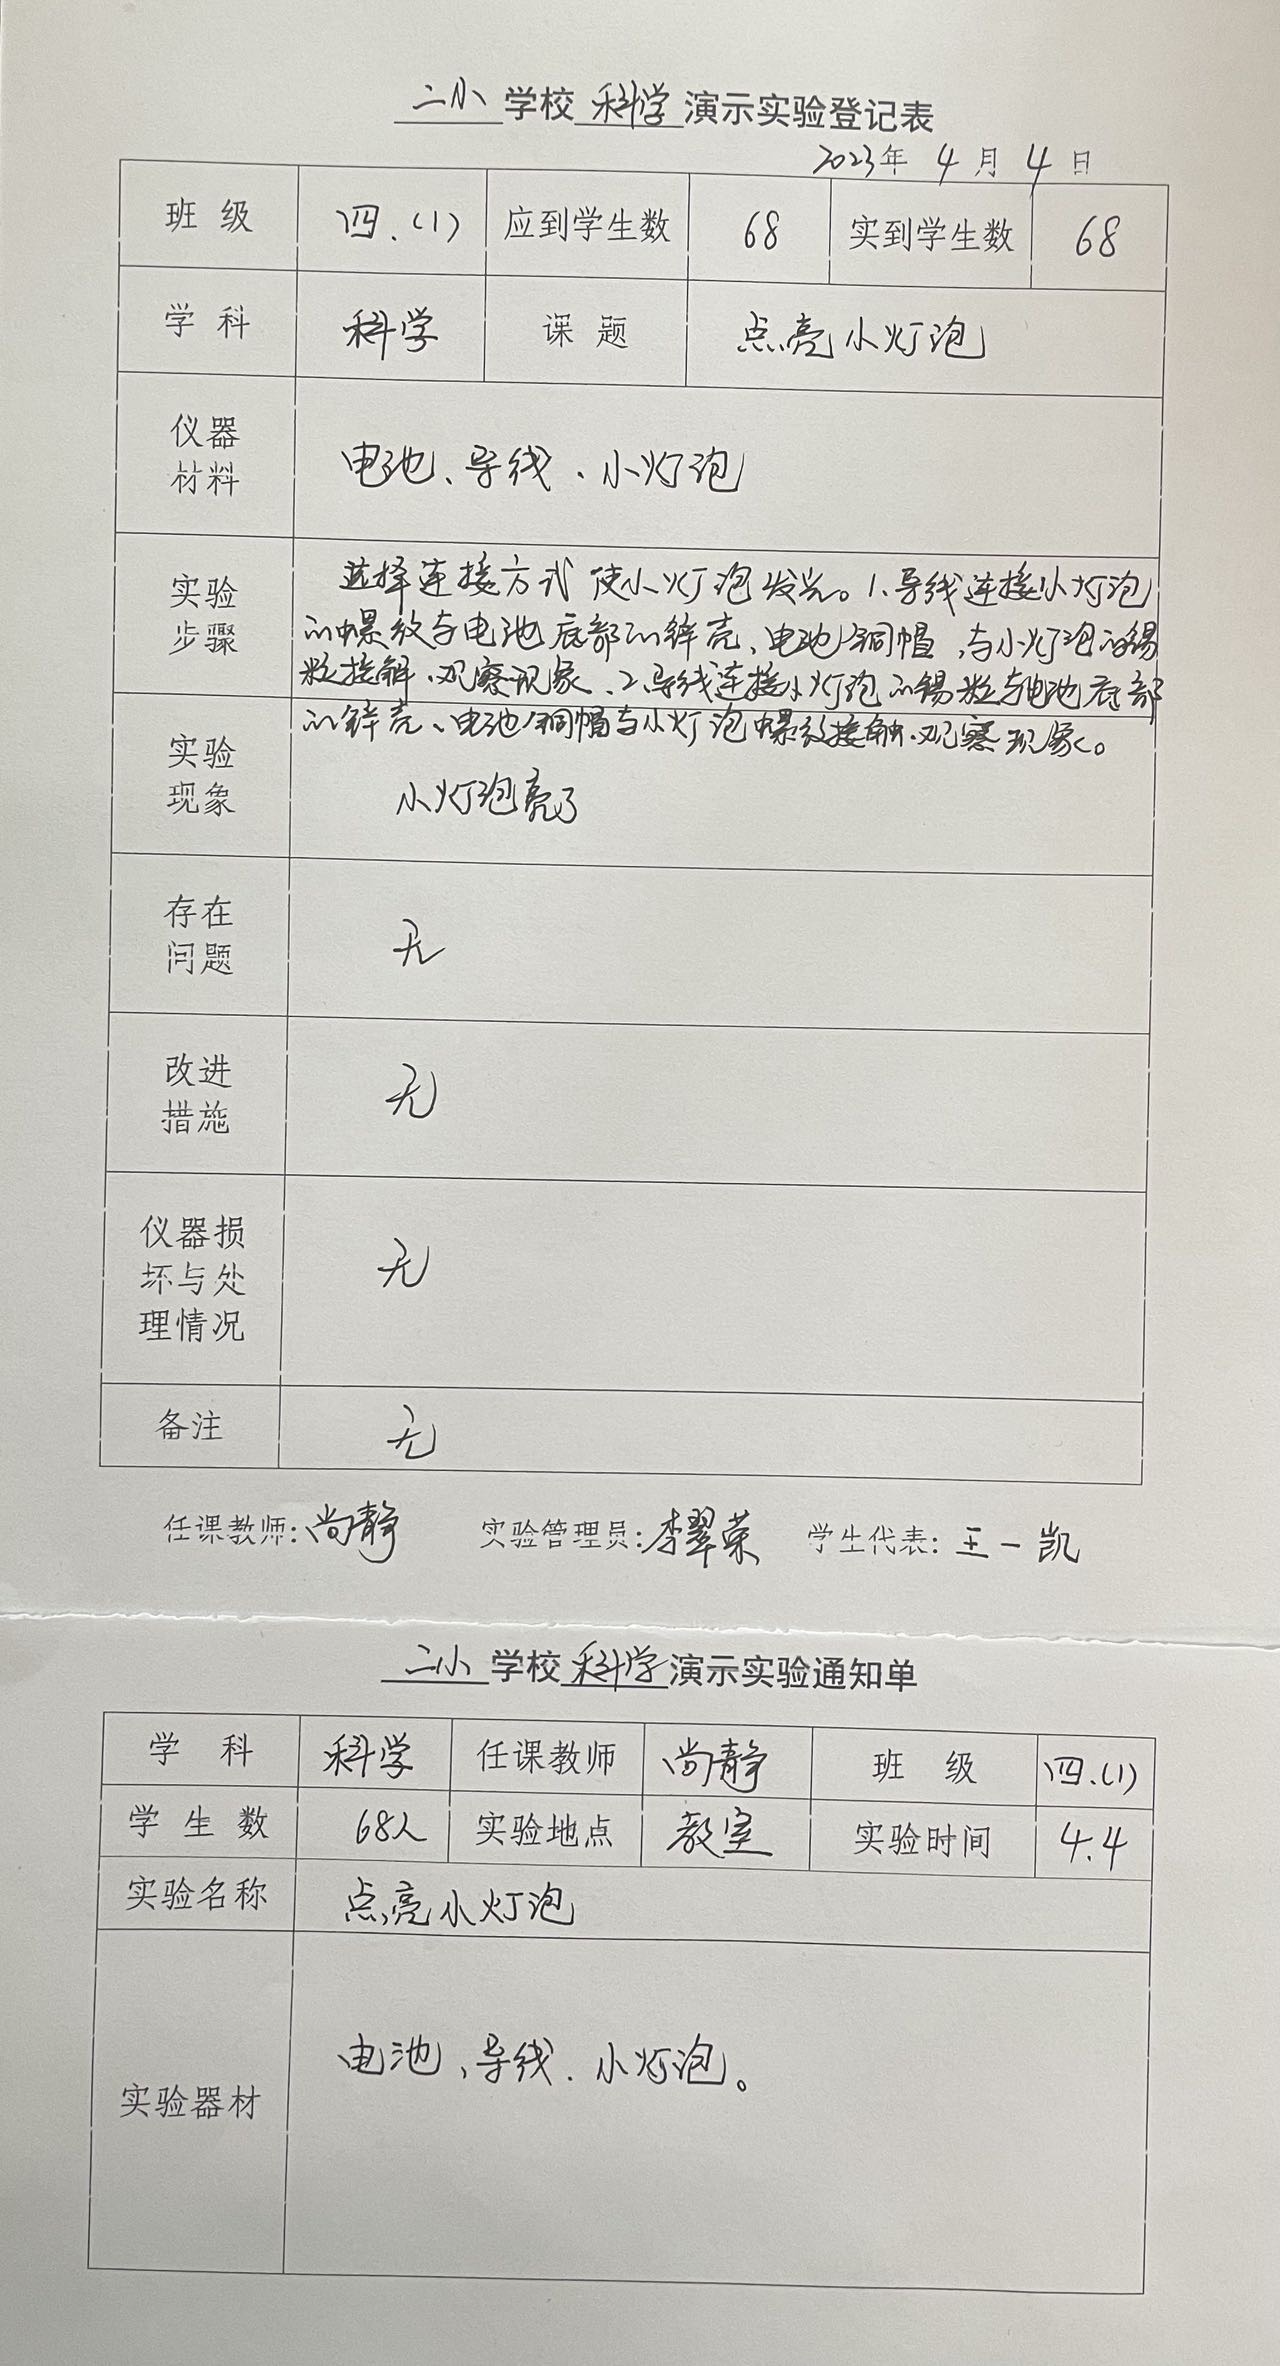 二小 学校 科学 演示实验登记表
2023年 4月 4日
班 级 四.(1) 应到学生数 68 实到学生数 68
学 科 科学 课 题 点亮小灯泡
仪器
材料
电池、导线、小灯泡
实验
步骤
选择连接方式使小灯泡发光。1.导线连接小灯泡
的螺纹与电池底部的锌壳、电池铜帽,与小灯泡的锡
粒接解.观察现象、2.导线连接小灯泡的锡粒与电池底部
的锌壳、电池铜帽与小灯泡螺纹接触.观察现象。
实验
现象
小灯泡亮了
存在
问题
无
改进
措施
无
仪器损
坏与处
理情况
无
备注 无
任课教师:尚静 实验管理员:李翠荣 学生代表:王一凯
二小 学校 科学 演示实验通知单
学 科 科学 任课教师 尚静 班 级 四.(1)
学 生 数 68人 实验地点 教室 实验时间 4.4
实验名称 点亮小灯泡
实验器材 电池、导线.小灯泡。